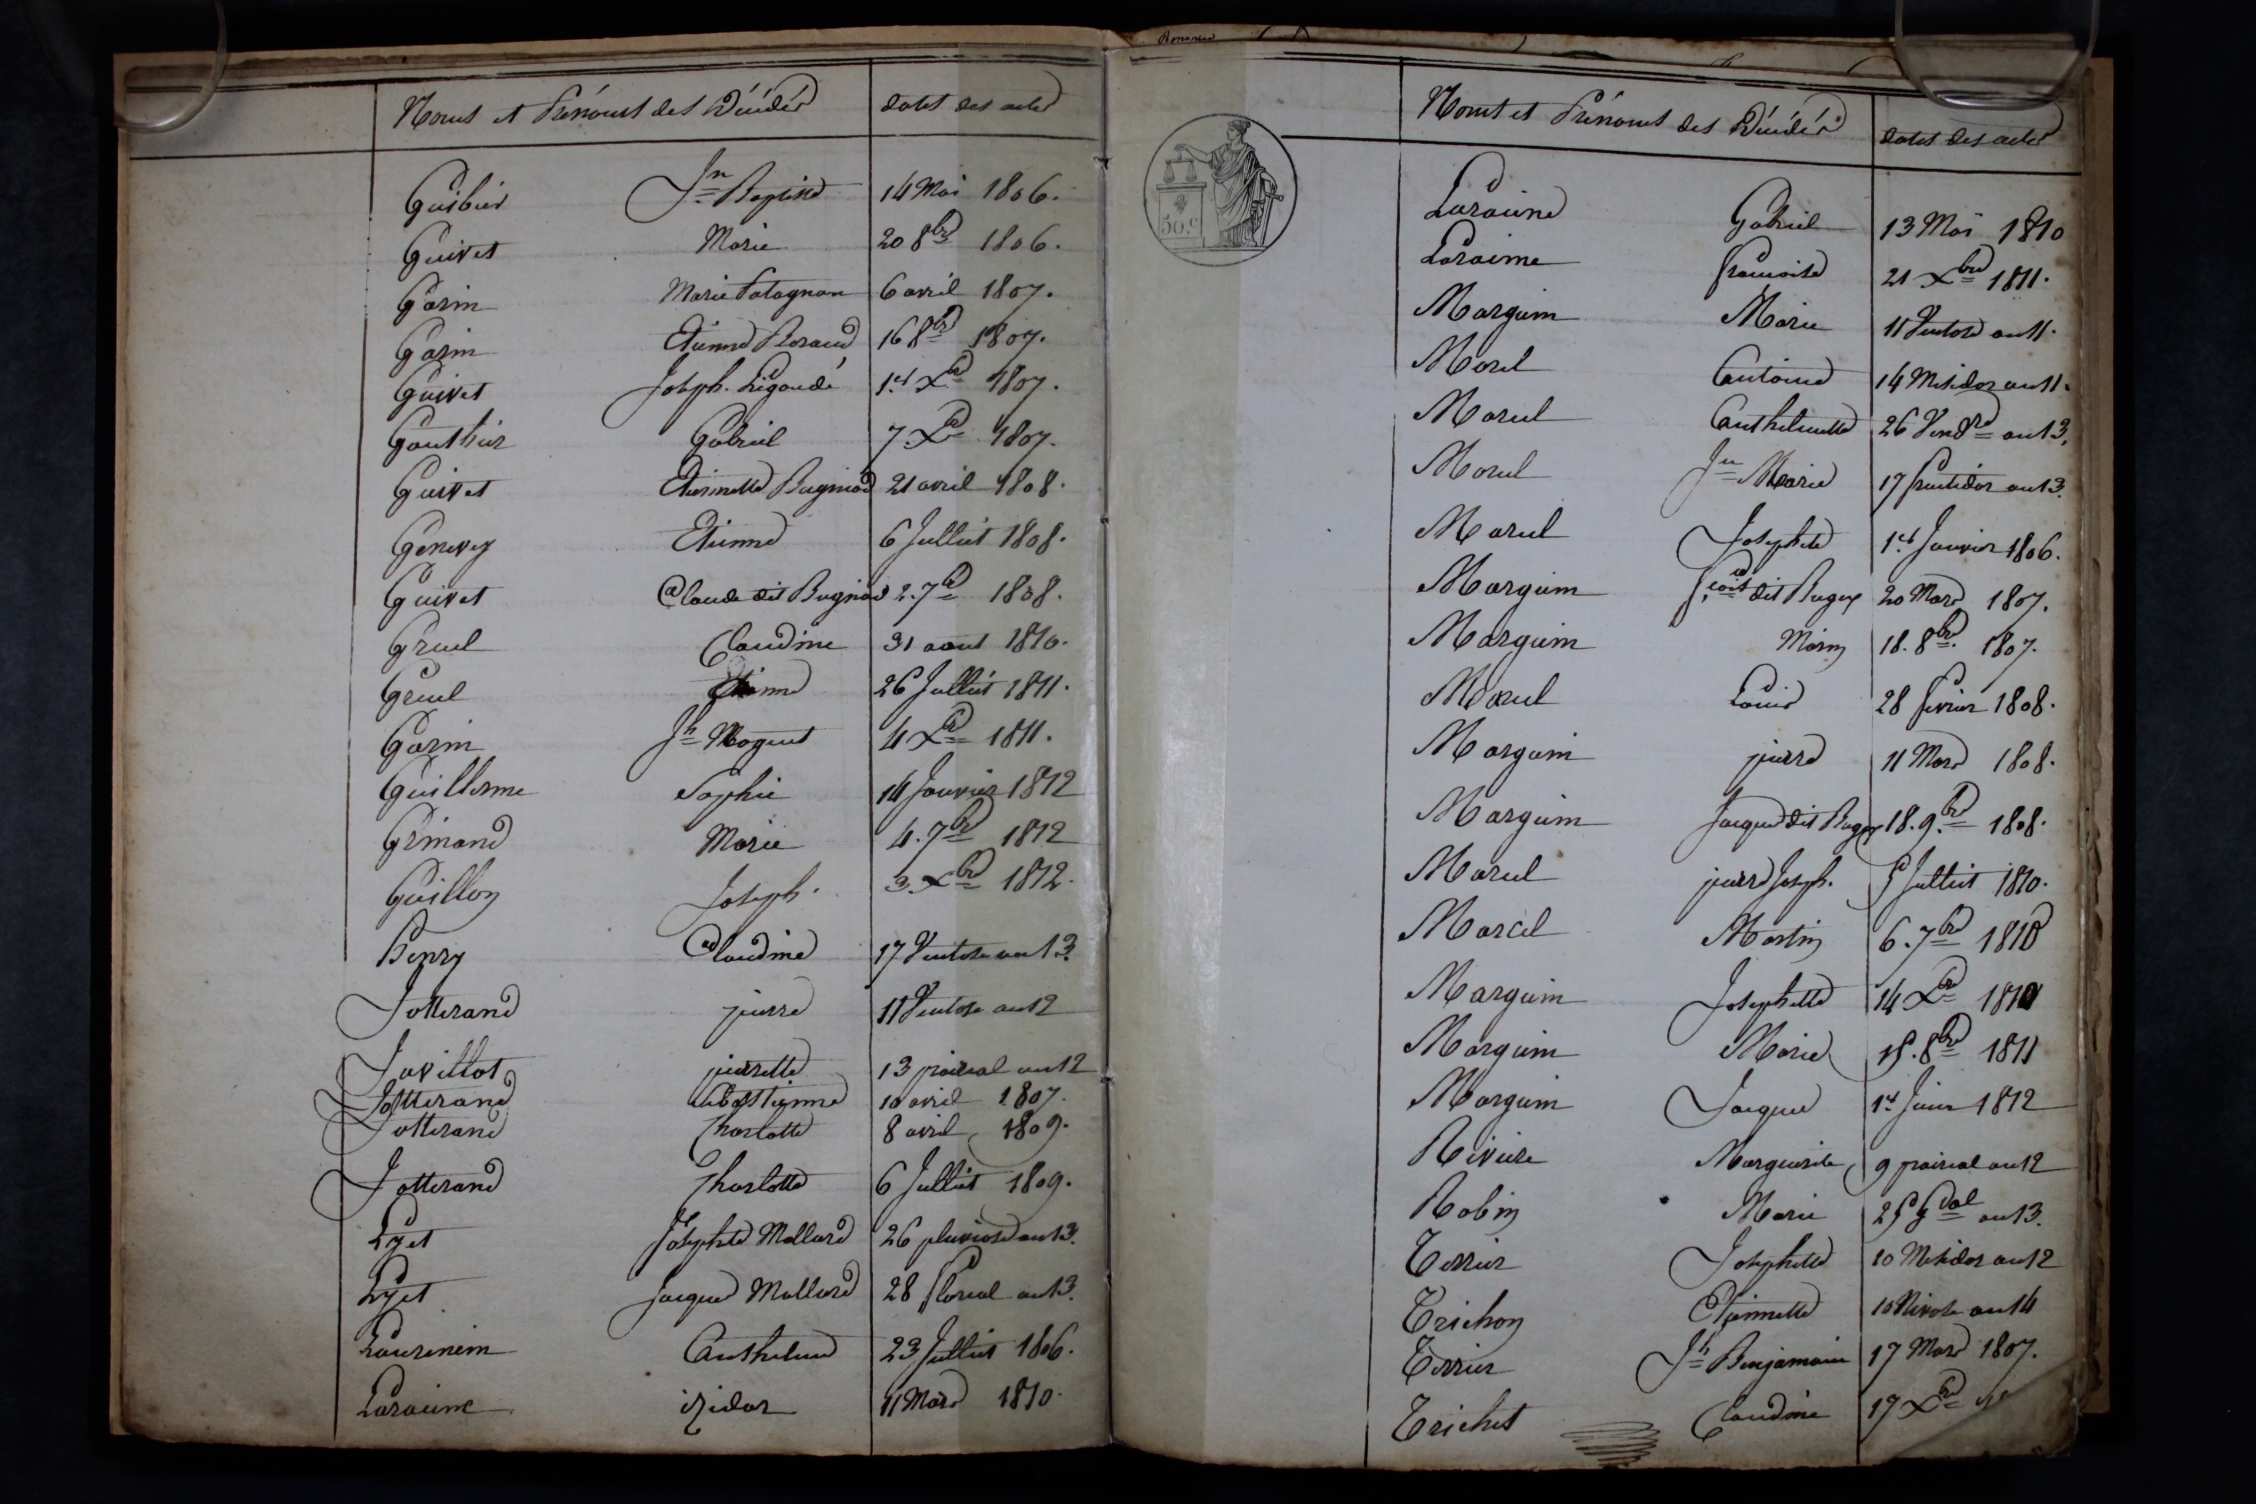 Noms et Prénoms des Décédés dates des actes
Guibier Jn Baptiste 14 Mai 1806.
Guivet Marie 20 8bre 1806.
Garin Marie Patagnan 6 avril 1807.
Garin Etienne 16 8bre 1807.
Guivet Joseph. Ligaudé 1er Xbre 1807.
Gauthier Gabriel 7. Xbre 1807.
Guivet Etiennette Bugniod 21 avril 1808.
Genevey Etienne 6 Juillet 1808.
Guivet Claude dit Bugniod 2. 7bre 1808.
Gruel Claudine 31 aout 1810.
Gruel Etienne 26 Juillet 1811.
Garin Jh Moquet 4 Xbre 1811.
Guillerme Sophie 14 Janvier 1812
Grimand Marie 4. 7bre 1812
Guillon Joseph. 3. Xbre 1812.
Henry Claudine 17 Ventose an 13.
Jotterand pierre 11 Ventose an 12
Javillot pierrette 13 prairial an 12
Jotterand Sébastienne 10 avril 1807.
Jotterand Charlotte 8 avril 1809.
Jotterand Charlotte 6 Juillet 1809.
Lyet Josephte Mollard 26 pluviose an 13.
Lyet Jacques Mollard 28 floreal an 13.
Laurenein Anthelme 23 Juillet 1806.
Laraime izidor 11 Mars 1810.
Noms et Prénoms des Décédés dates des actes
50.c
Laraime Gabriel 13 Mai 1810
Laraime francoise 21 Xbre 1811.
Marguin Marie 11 Ventose an 11.
Morel Antoine 14 Mesidor an 11.
Morel Anthelmette 26 Vendre an 13.
Morel Jn Marie 17 fructidor an 13.
Morel Josephte 1er Janvier 1806.
Marguin fcois dit Bugey 20 Mars 1807.
Marguin Marin 18. 8bre 1807.
Morel Louis 28 fevrier 1808.
Marguin pierre 11 Mars 1808.
Marguin Jacques dit Bugey 18. 9bre 1808.
Morel pierre Joseph. 5 Juillet 1810.
Marcel Martin 6. 7bre 1810
Marguin Josephette 14 Xbre 1810
Marguin Marie 15. 8bre 1811
Marguin Jacques 1er Juin 1812
Riviere Marguerite 9 prairial an 12
Robin Marie 25 gal an 13.
Terrier Josephette 10 Mesidor an 12
Trichon Etiennette 10 Nivose an 14
Terrier Jh Benjamain 17 Mars 1807.
Trichet Claudine 17 Xbre